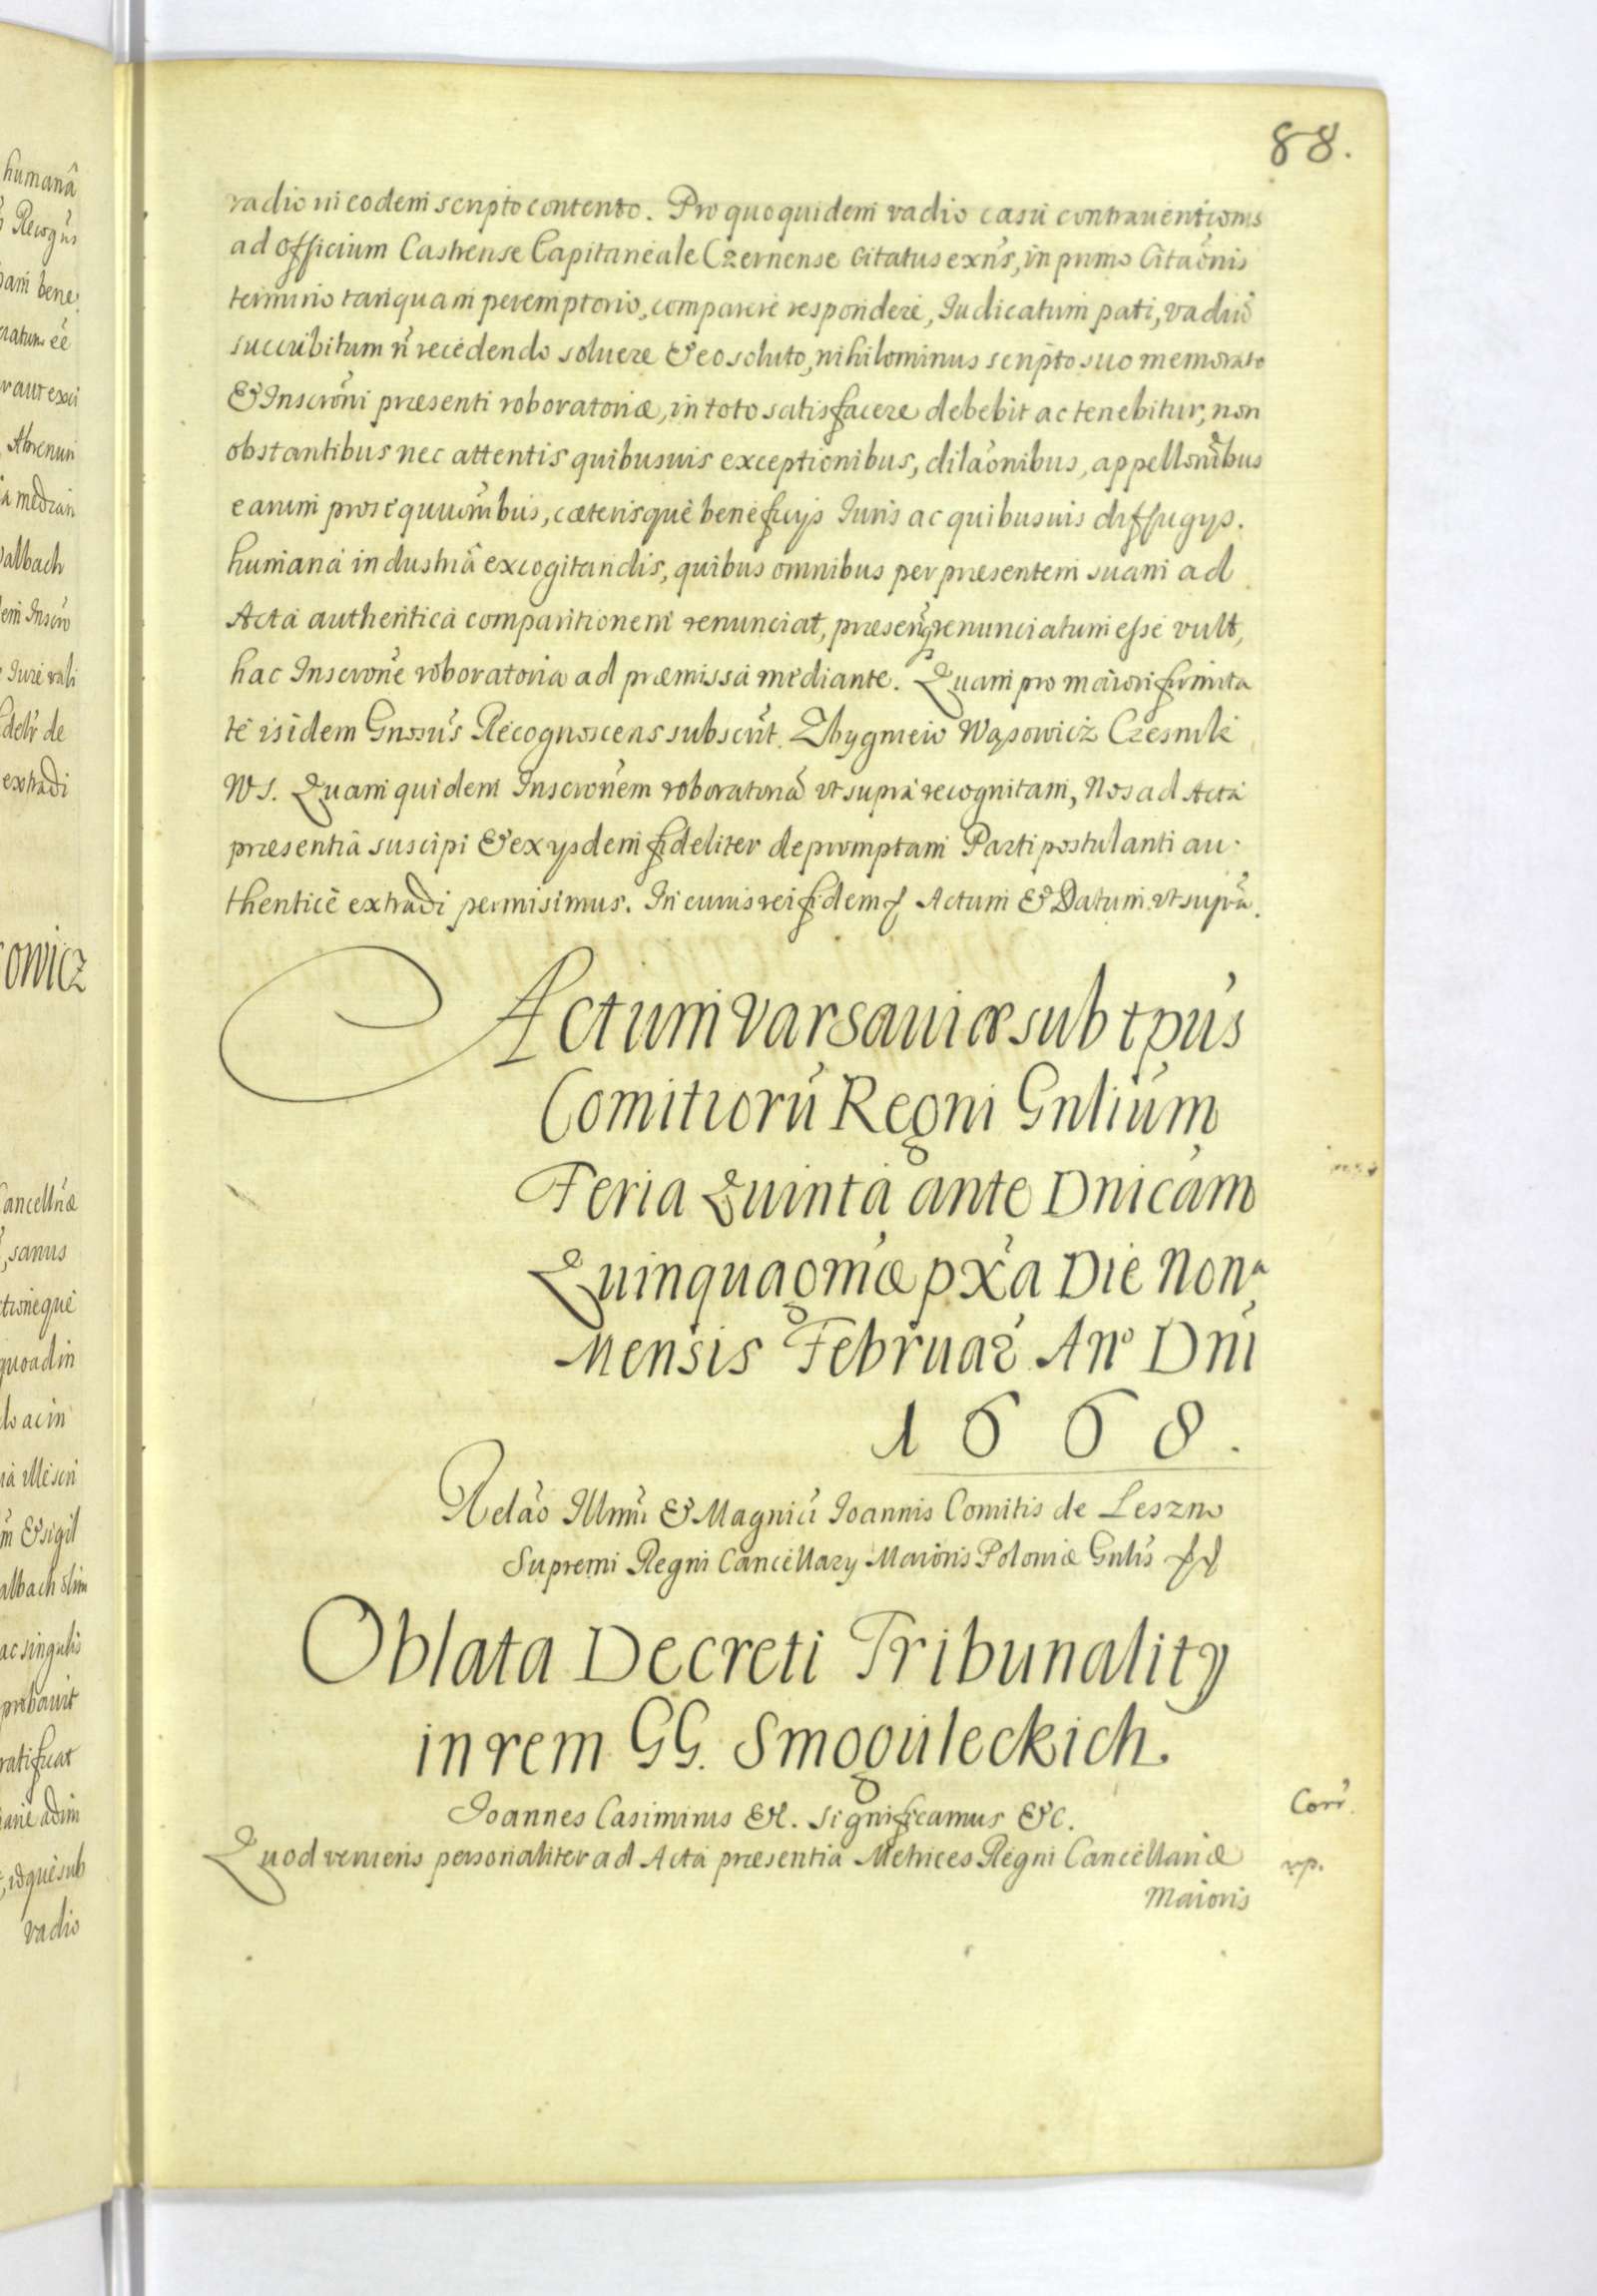 88.
vadio in eodem scripto contento. Pro quo quidem vadio casu contrauentionis
ad officium Castrense Capitaneale Czernense citatus exñs, in primo Citaõnis
termino tanquam peremptorio, comparere respondere, Iudicatum pati, vadiũ
succubitum ñ recedendo soluere & eo soluto, nihilominus scripto suo memorato
& Inscrõni præsenti roboratoriæ, in toto satisfacere debebit ac tenebitur, non
obstantibus nec attentis quibusuis exceptionibus, dilaõnibus, appellõnibus
earum prosequuõnibus, cæterisque beneficijs Iuris ac quibusuis diffugijs.
humanâ industriâ excogitandis, quibus omnibus per præsentem suam ad
Acta authentica comparitionem renunciat, præsenq̃ renunciatum esse vult,
hac Inscrõne roboratoria ad præmissa mediante. Quam pro maiori firmita
te isidem Gnosus Recognoscens subscrĩt. Zbygmeiw Wąsowicz Czesnik
WS. Quam quidem Inscrõnem roboratoriã vt supra recognitam, Nos ad Acta
præsentia suscipi & ex ijsdem fideliter depromptam Parti postulanti au-
thenticè extradi permisimus. In cuius rei fidem Actum & Datum vt supra.
Actum Varsauiæ sub tpus
Comitiorũ Regni Gnlium
Feria Quinta ante Dnicam
Quinquagmæ pxa Die Nonª
Mensis Februar An° Dni
1668.
Relão Illmi & Magnici Ioannis Comitis de Leszno
Supremi Regni Cancellarÿ Maioris Poloniæ Gnlis
Oblata Decreti Tribunality
in rem GG. Smoguleckich.
Ioannes Casimirus &c. Significamus &c.
Corr.
Quod veniens personaliter ad Acta præsentia Metrices Regni Cancellariæ
rp.
Maioris